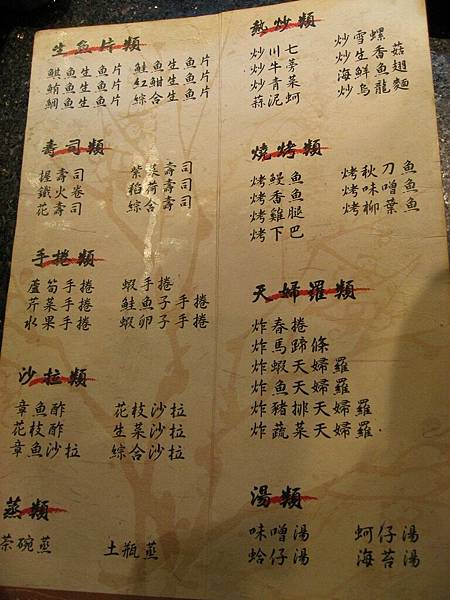 生魚片類
鯕魚生魚片 鮭魚生魚片
鮪魚生魚片 紅魽生魚片
鯛魚生魚片 綜合生魚片
壽司類
握壽司 紫菜壽司
鐵火卷 稻荷壽司
花壽司 綜合壽司
手捲類
蘆筍手捲 蝦手捲
芹菜手捲 鮭魚子手捲
水果手捲 蝦卵子手捲
沙拉類
章魚酢 花枝沙拉
花枝酢 生菜沙拉
章魚沙拉 綜合沙拉
蒸類
茶碗蒸 土瓶蒸
熱炒類
炒川七 炒雪螺
炒牛蒡 炒生香菇
炒青菜 海鮮魚翅
蒜泥蚵 炒烏龍麵
燒烤類
烤鰻魚 烤秋刀魚
烤香魚 烤味噌魚
烤雞腿 烤柳葉魚
烤下巴
天婦羅類
炸春捲
炸馬蹄條
炸蝦天婦羅
炸魚天婦羅
炸豬排天婦羅
炸蔬菜天婦羅
湯類
味噌湯 蚵仔湯
蛤仔湯 海苔湯